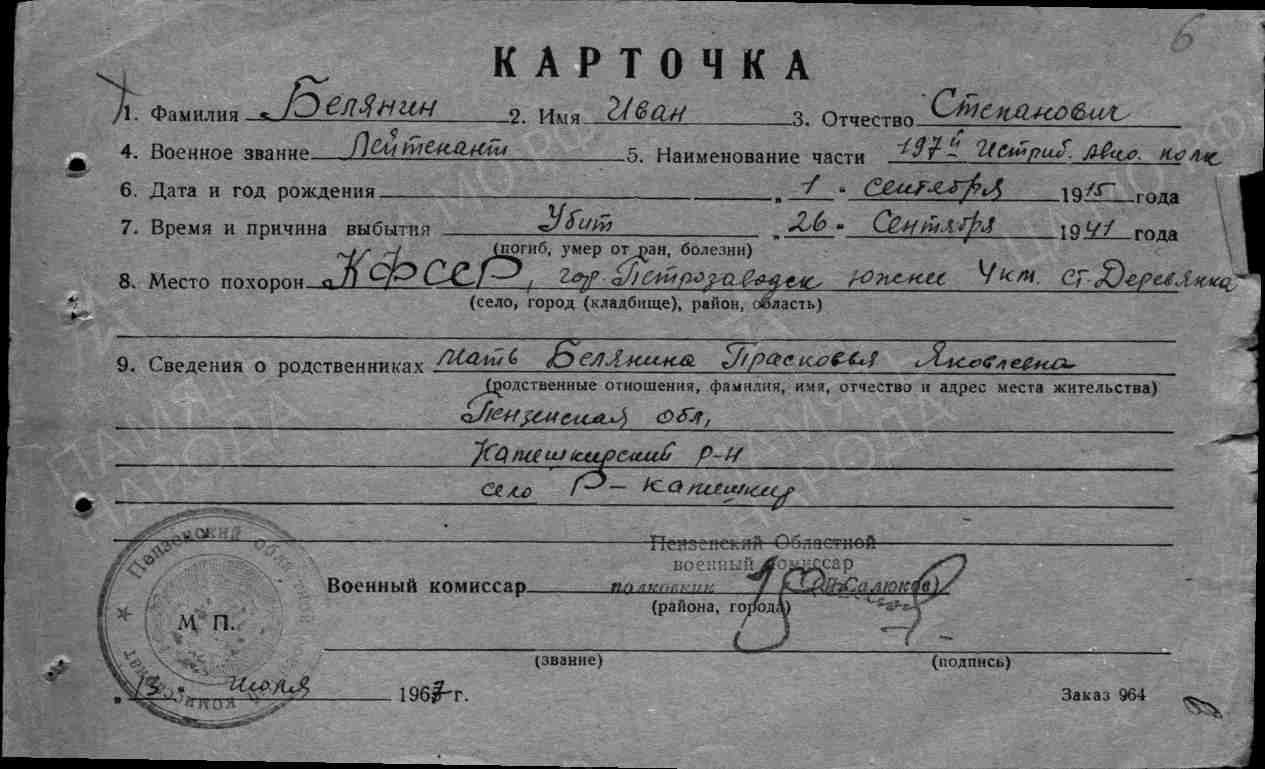 6
КАРТОЧКА
1. Фамилия Белянин 2. Имя Иван 3. Отчество Степанович
4. Военное звание Лейтенант 5. Наименование части 197й Истриб. Авио. полк
6. Дата и год рождения „ 1 " сентября 1915 года
7. Время и причина выбытия Убит „ 26 " Сентября 1941 года
(погиб, умер от ран, болезни)
8. Место похорон КФССР, гор. Петрозаводск южнее 4 км. ст. Деревянка
(село, город (кладбище), район, область)
9. Сведения о родственниках Мать Белянина Прасковья Яковлевна
(родственные отношения, фамилия, имя, отчество и адрес места жительства)
Пензенская обл,
Камешкирский р-н
село Р-камешкир
Пензенский Областной
военный комиссар
Военный комиссар полковник
(района, города)
М П.
(звание) (подпись)
„ 13 " июля 1967 г. Заказ 964
Пензенский
ПАМЯТЬ НАРОДА